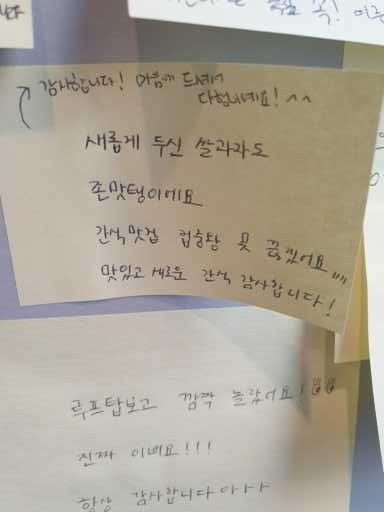 감사합니다! 마음에 드셔서
다행이네요! ^^
새롭게 두신 쌀과자도
존맛탱이에요
간식맛집 협승탕 못 끊겠어요
맛있고 새로운 간식 감사합니다!
루프탑보고 깜짝 놀랐어요!
진짜 이뻐요!!!
항상 감사합니다아아